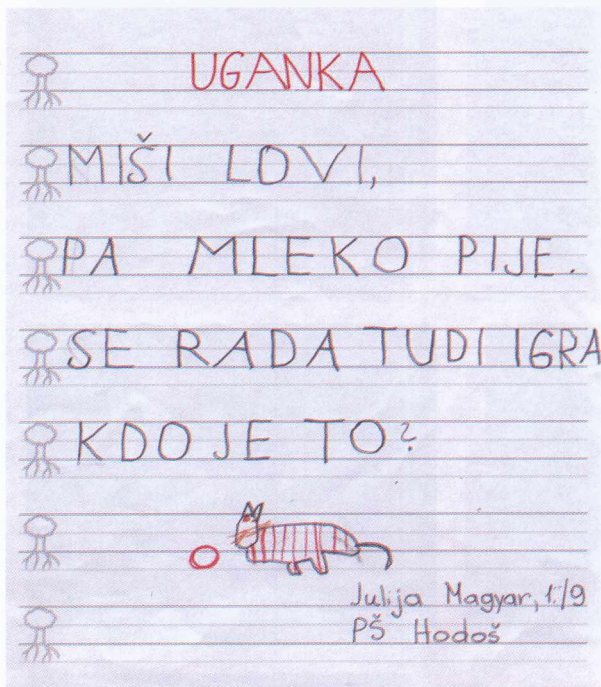 UGANKA
MIŠI LOVI,
PA MLEKO PIJE.
SE RADA TUDI IGRA
KDO JE TO?
Julija Magyar, 1./9
PŠ Hodoš